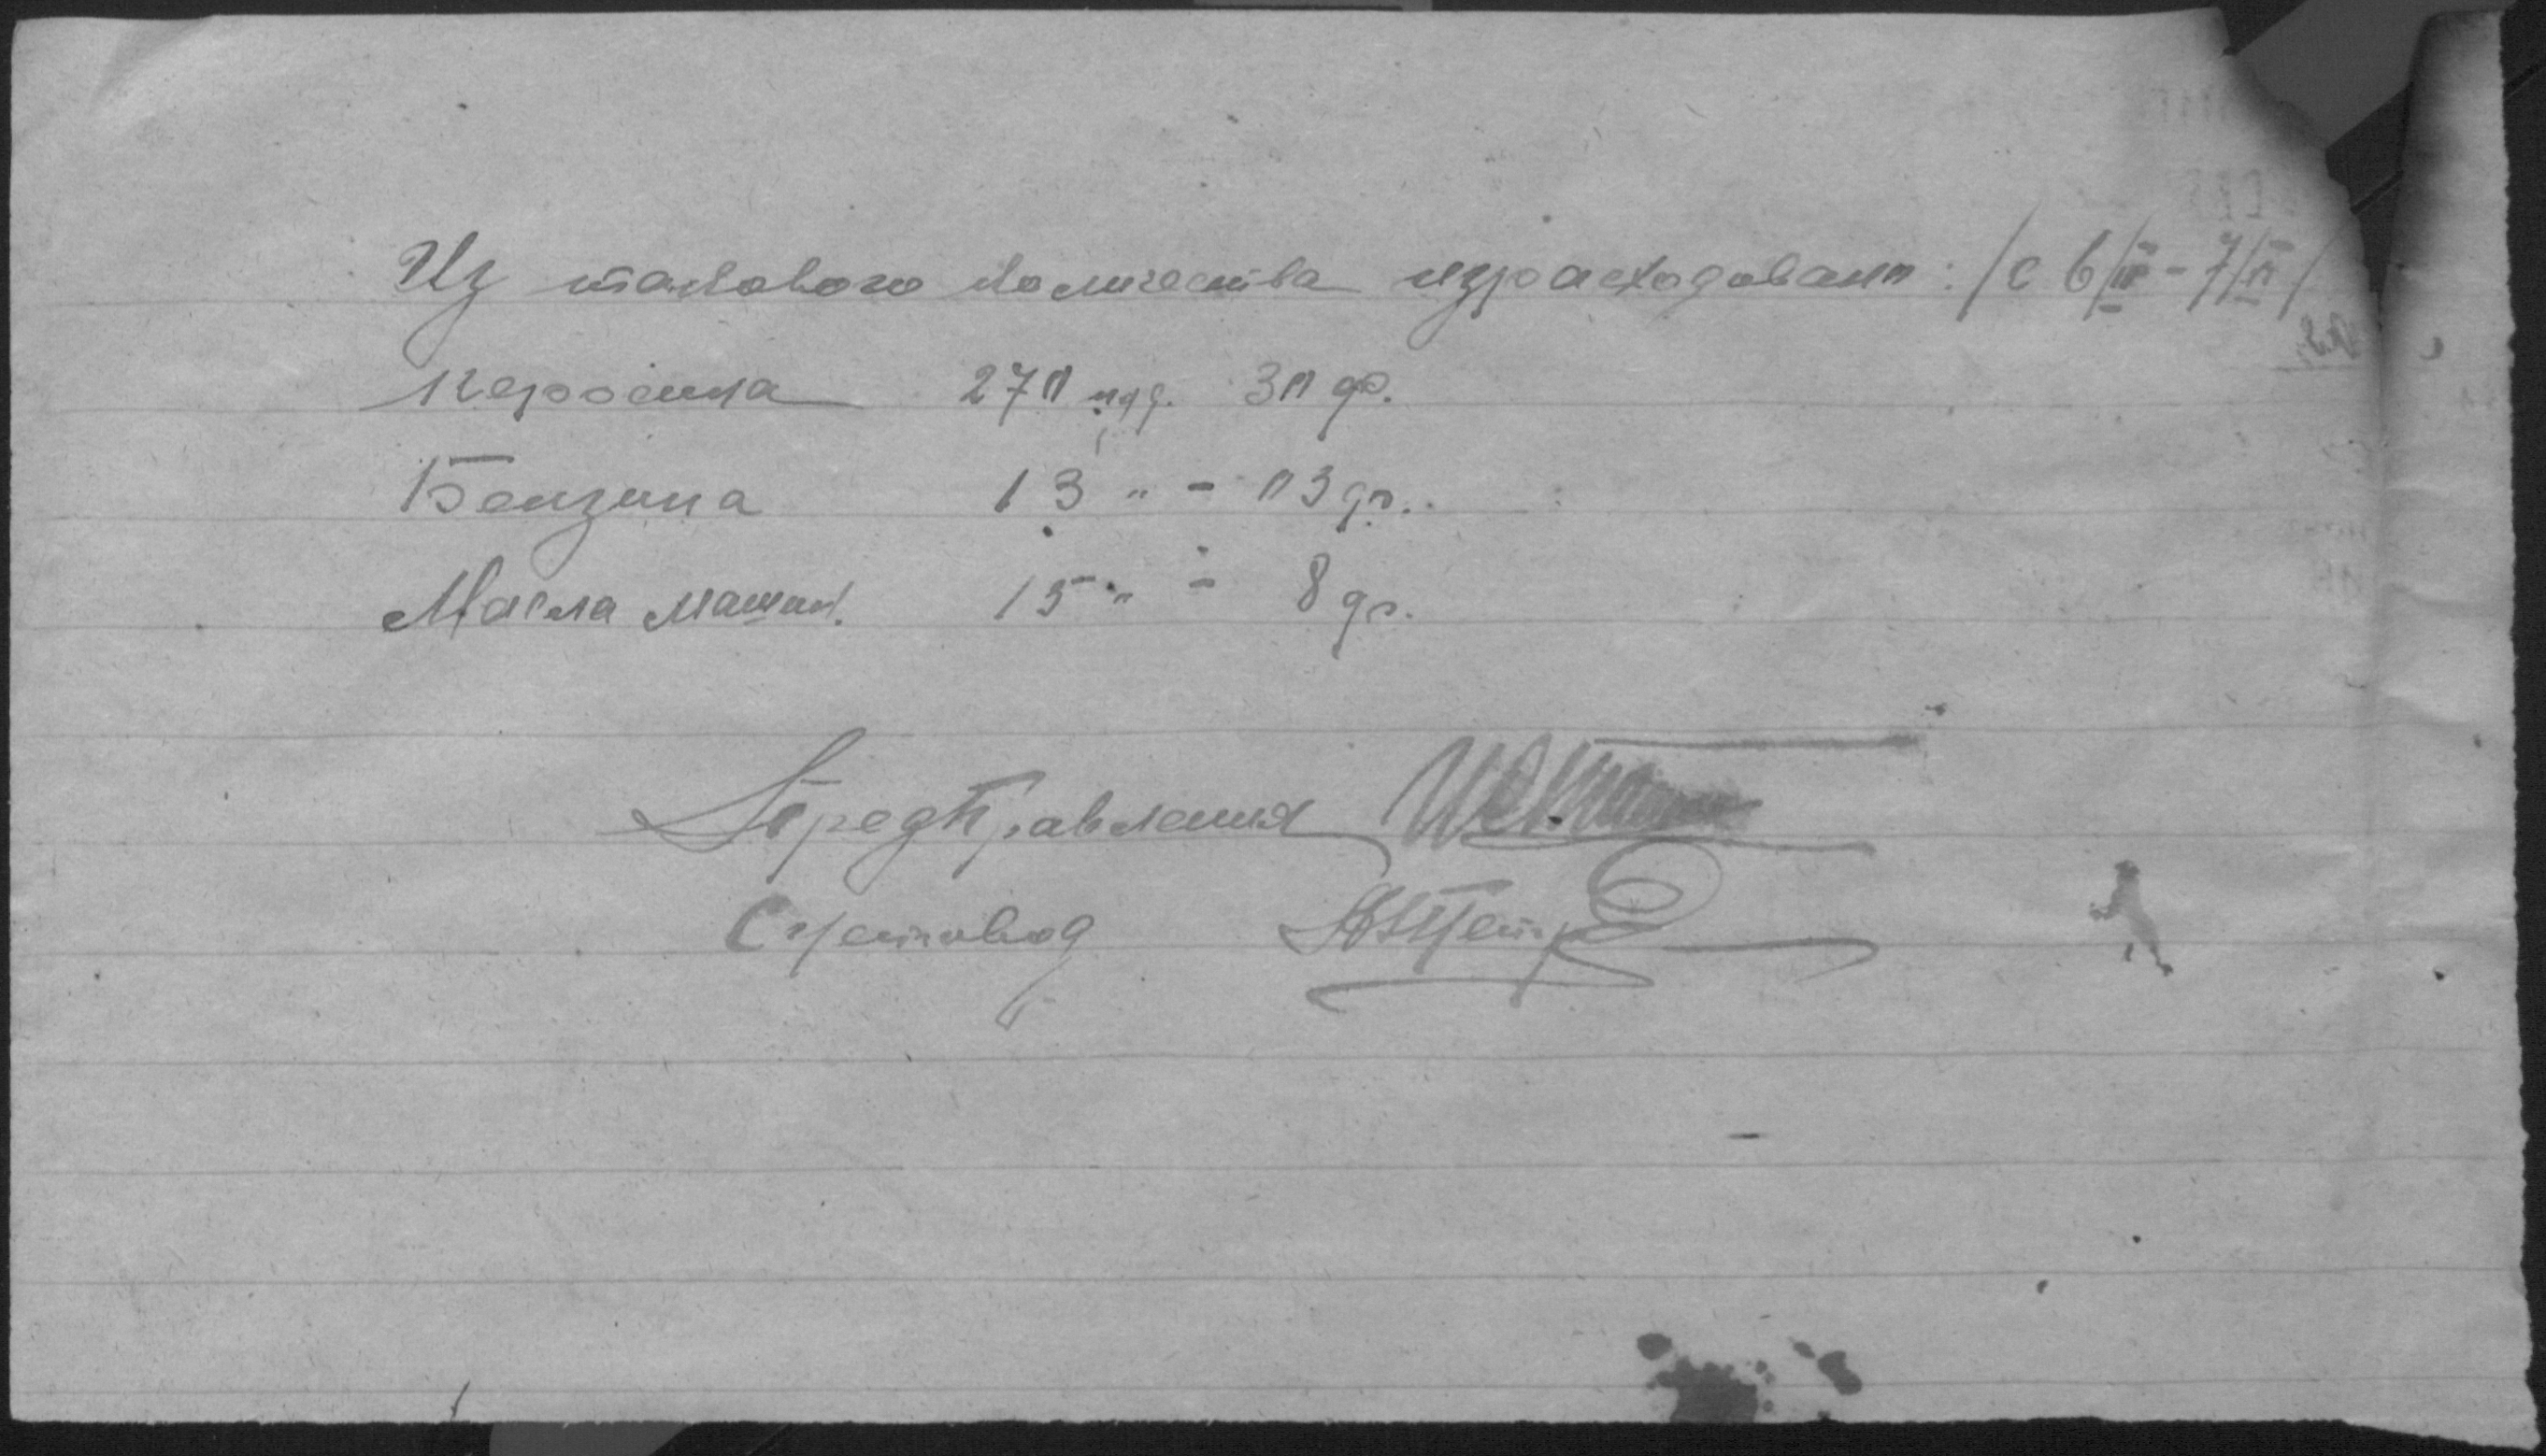 Из такового количества израсходовано: /с 6/III - 7/IV/
Керосина 270 пуд. 30 ф.
Бензина 13 " - 03 ф.
Масла машин. 15 " - 8 ф.
Пред Правления
Счетовод